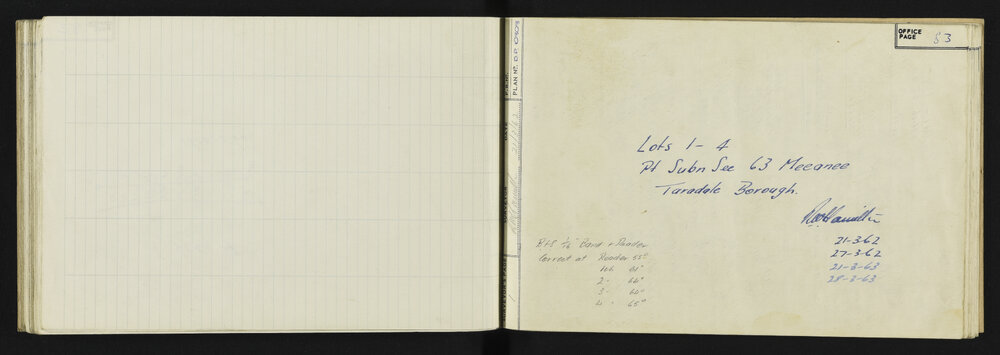 OFFICE
PAGE 83
PLAN No. D.P.
DATE
21/3/62
Lots 1 - 4
Pt Subn Sec 63 Meeanee
Taradale Borough.
RWHamilton
21-3-62
27-3-62
21-3-63
28-3-63
Band + Reader
Correct at Reader 55°
61°
2 " 64°
3 " 60°
4 " 65°